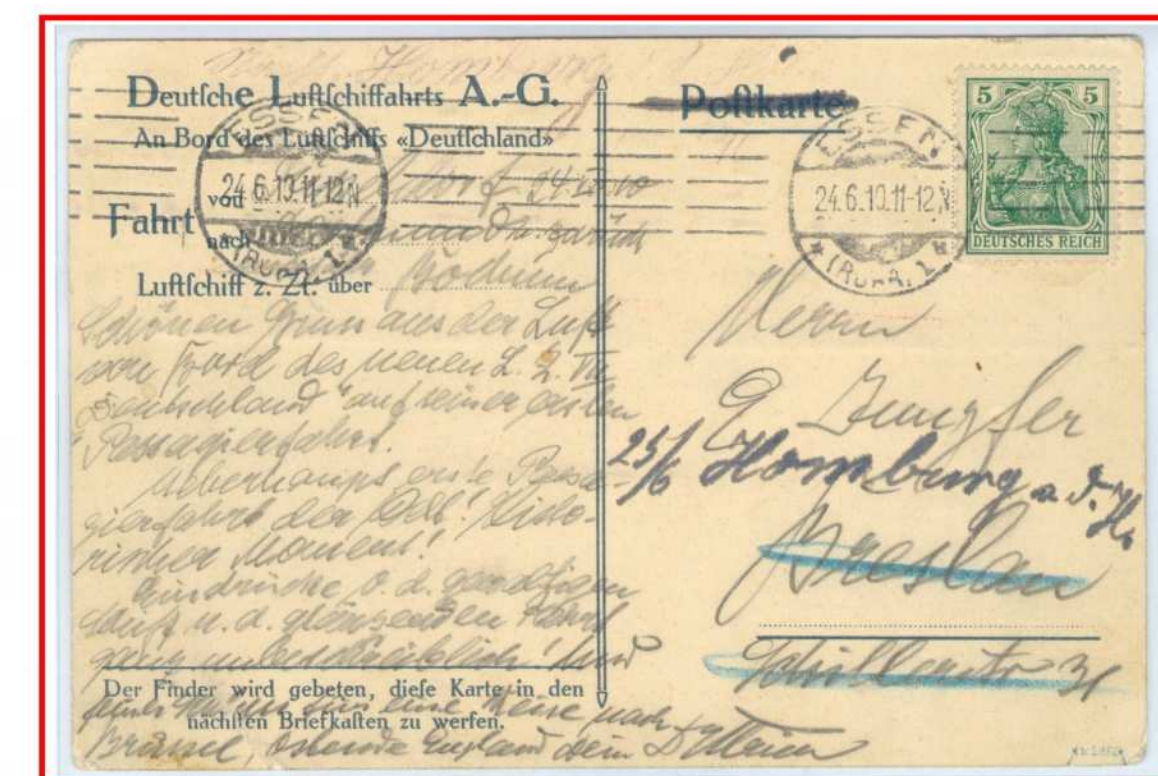 Deutsche Luftschiffahrts A.-G.
An Bord des Luftschiffs «Deutschland»
Fahrt von
24.VI.10
nach
Luftschiff z. Zt. über Bochum
Schönen Gruss aus der Luft
von Bord des neuen L. Z. VII
Deutschland" auf seiner ersten
Passagierfahrt.
Ueberhaupt erste Passa-
gierfahrt der Welt! Histo-
rischer Moment!
Eindrücke v. d.
u. d. glänzenden
unbeschreiblich! Und
Der Finder wird gebeten, diese Karte in den
nächsten Briefkasten zu werfen.
eine Reise nach
Brüssel, Ostende England dein
Postkarte
ESSEN
24.6.10.11-12N
* (RUHR) 1 *
ESSEN
24.6.10.11-12N
* (RUHR) 1 *
5 5
DEUTSCHES REICH
Herrn
Jungfer
25/6 Homburg a. d. H.
Breslau
31